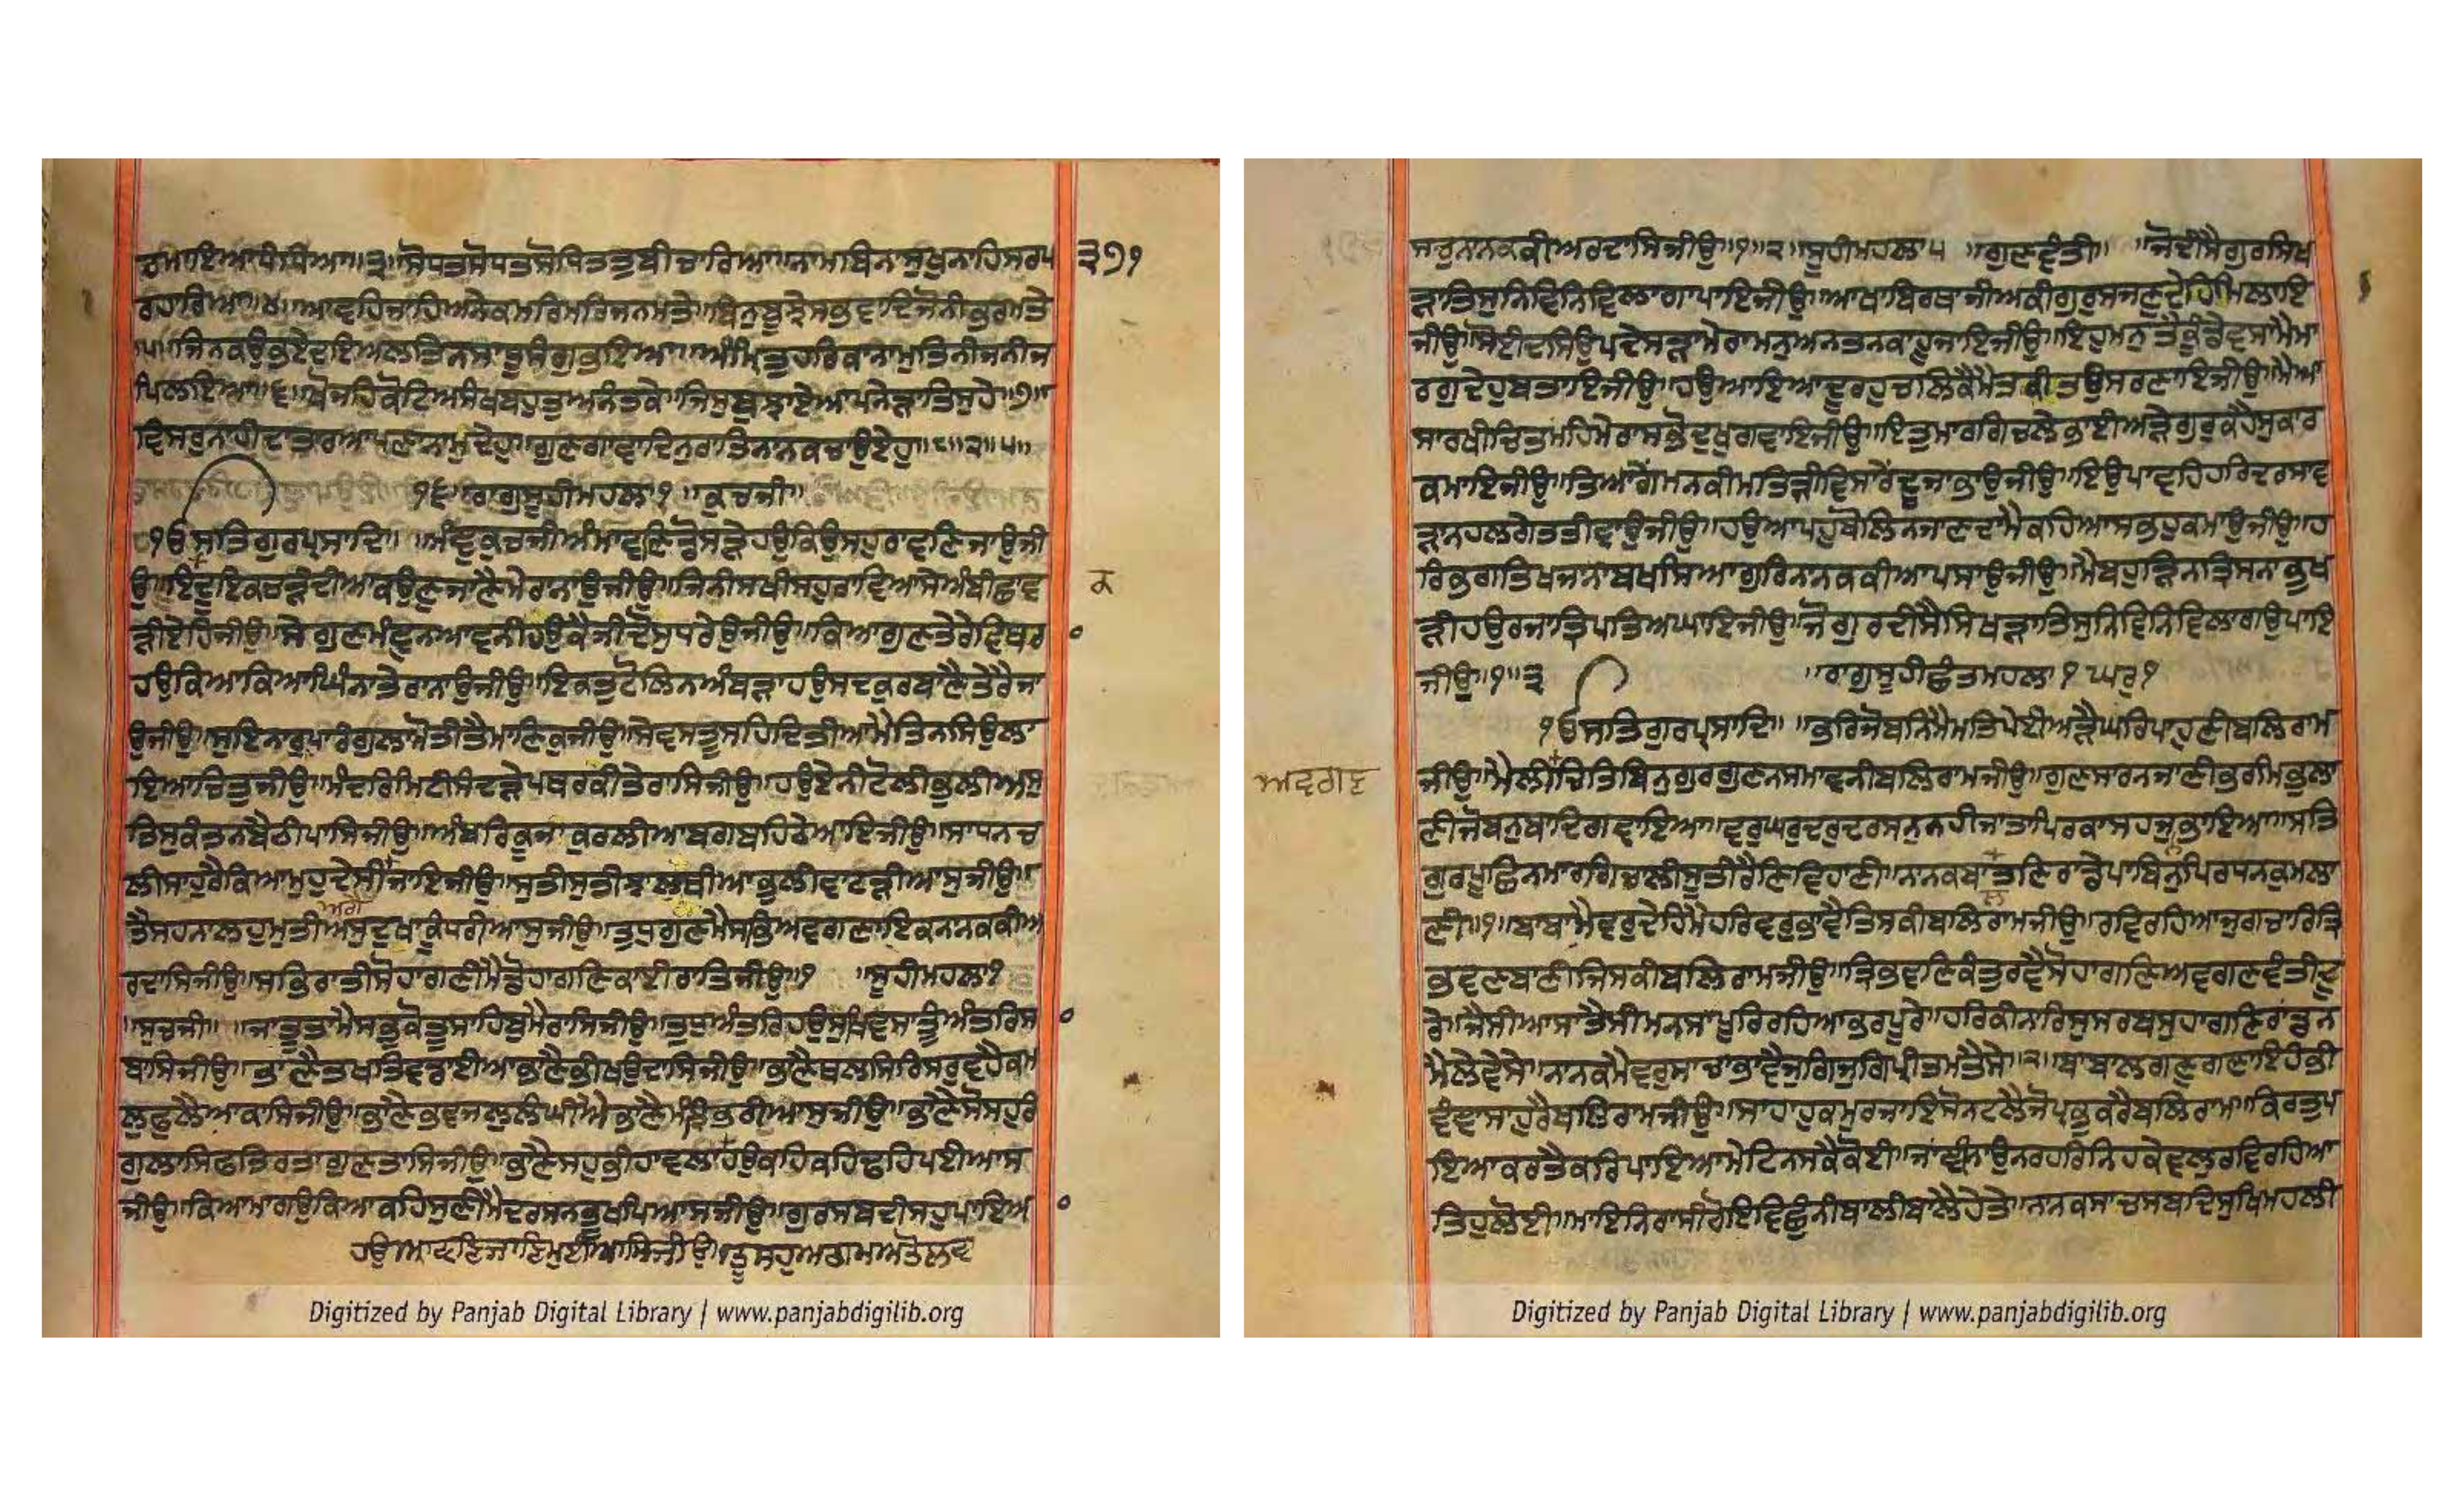 ਸੋਧਤਸੋਧਤਸੋਧਿਤਤੁਬੀਚਾਰਿਆ॥ਨਾਮਬਿਨਾਸੁਖੁਨਾਹਿਸਰਪ ੩੭੧
ਰਹਾਰਿਆ॥੪॥ਆਵਹਿਜਾਹਿਅਨੇਕਮਰਿਮਰਿਜਨਮਤੇ॥ਬਿਨੁਬੂਝੇਸਭੁਵਾਦਿਜੋਨੀਭਰਮਤੇ
॥੫॥ਜਿਨਕਉਭਏਦਇਆਲਤਿਨਸਾਧੂਸੰਗੁਭਇਆ॥ਅੰਮ੍ਰਿਤੁਹਰਿਕਾਨਾਮੁਤਿਨੀਜਨੀਜ
ਪਿਲਇਆ॥੬॥ਖੋਜਹਿਕੋਟਿਅਸੰਖਬਹੁਤੁਅਨੰਤਕੇ॥ਜਿਸੁਬੁਝਾਏਆਪਨੇੜਾਤਿਸੁਹੇ॥੭॥
ਵਿਸਰੁਨਾਹੀਦਾਤਾਰਆਪਣਾਨਾਮੁਦੇਹੁ॥ਗੁਣਗਾਵਾਦਿਨੁਰਾਤਿਨਾਨਕਚਾਉਏਹੁ॥੮॥੨॥੫॥
੧੬ ॥ਰਾਗੁਸੂਹੀਮਹਲਾ੧ ॥ਕੁਚਜੀ॥
੧ਓਸਤਿਗੁਰਪ੍ਰਸਾਦਿ॥ ॥ਮੰਞੁਕੁਚਜੀਅੰਮਾਵਣਿਡੋਸੜੇਹਉਕਿਉਸਹੁਰਾਵਣਿਜਾਉਜੀ
ਉ॥ਇਦੂਇਕਚੜੰਦੀਆਕਉਣੁਜਾਣੈਮੇਰਾਨਾਉਜੀਉ॥ਜਿਨੀਸਖੀਸਹੁਰਾਵਿਆਸੇਅੰਬੀਛਾਵ ਕ
ੜੀਏਹਿਜੀਉ॥ਸੇਗੁਣਮੰਞੁਨਆਵਨੀਹਉਕੈਜੀਦੋਸੁਧਰੇਉਜੀਉ॥ਕਿਆਗੁਣਤੇਰੇਵਿਥਰ
ਹਉਕਿਆਕਿਆਘਿੰਨਾਤੇਰਾਨਾਉਜੀਉ॥ਇਕਤੁਟੋਲਿਨਅੰਬੜਾਹਉਸਦਕੁਰਬਾਣੈਤੇਰੈਜਾ
ਉਜੀਉ॥ਸੁਇਨਾਰੁਪਾਰੰਗੁਲਾਮੋਤੀਤੈਮਾਣਿਕੁਜੀਉ॥ਸੇਵਸਤੂਸਹਿਦਿਤੀਆਮੈਤਿਨਸਿਉਲਾ
ਇਆਚਿਤੁਜੀਉ॥ਮੰਦਰਿਮਿਟੀਸੰਦੜੇਪਥਰਕੀਤੇਰਾਸਿਜੀਉ॥ਹਉਏਨੀਟੋਲੀਭੁਲੀਅਸੁ
ਤਿਸੁਕੰਤਨਬੈਠੀਪਾਸਿਜੀਉ॥ਅੰਬਰਿਕੂਜਾਕੁਰਲੀਆਬਗਬਹਿਠੇਆਇਜੀਉ॥ਸਾਧਨਚ
ਲੀਸਾਹੁਰੈਕਿਆਮੁਹੁਦੇਸੀਜਾਇਜੀਉ॥ਸੁਤੀਸੁਤੀਝਾਲੁਥੀਆਭੁਲੀਵਾਟੜੀਆਸੁਜੀਉ॥
ਤੈਸਹਨਾਲਹੁਮੁਤੀਅਸੁਦੁਖਾਕੂੰਧਰੀਆਸੁਜੀਉ॥ਤੁਧੁਗੁਣਮੈਸਭਿਅਵਗਣਾਇਕਨਾਨਕਕੀਅ
ਰਦਾਸਿਜੀਉ॥ਸਭਿਰਾਤੀਸੋਹਾਗਣੀਮੈਡੋਹਾਗਣਿਕਾਈਰਾਤਿਜੀਉ॥੧ ॥ਸੂਹੀਮਹਲਾ੧
॥ਸੁਚਜੀ॥ ॥ਜਾਤੂਤਾਮੈਸਭੁਕੋਤੂਸਾਹਿਬੁਮੇਰਾਸਿਜੀਉ॥ਤੁਧੁਅੰਤਰਿਹਉਸੁਖਿਵਸਾਤੂੰਅੰਤਰਿਸਾ
ਬਾਸਿਜੀਉ॥ਭਾਣੈਤਖਤਿਵਡਾਈਆਭਾਣੈਭੀਖਉਦਾਸਿਜੀਉ॥ਭਾਣੈਥਲਸਿਰਿਸਰੁਵਹੈਕਮ
ਲੁਫੁਲੈਆਕਾਸਿਜੀਉ॥ਭਾਣੈਭਵਜਲੁਲੰਘੀਐਭਾਣੈਮੰਝਿਭਰੀਆਸੁਜੀਉ॥ਭਾਣੈਸੋਸਹੁਰੰ
ਗੁਲਾਸਿਫਤਿਰਤਾਗੁਣਤਾਸਿਜੀਉ॥ਭਾਣੈਸਹੁਭੀਹਾਵਲਾਹਉਕਹਿਕਹਿਢਹਿਪਈਆਸ
ਜੀਉ॥ਕਿਆਮਾਗਉਕਿਆਕਹਿਸੁਣੀਮੈਦਰਸਨਭੂਖਪਿਆਸਜੀਉ॥ਗੁਰਸਬਦੀਸਹੁਪਾਇਆ
ਹਉਆਵਣਿਜਾਣਿਮੁਈਆਸਿਜੀਉ॥ਤੂਸਹੁਅਗਮਅਤੋਲਵਾ
Digitized by Panjab Digital Library | www.panjabdigilib.org
ਸਚੁਨਾਨਕਕੀਅਰਦਾਸਿਜੀਉ॥੧॥੨॥ਸੂਹੀਮਹਲਾ੫ ॥ਗੁਣਵੰਤੀ॥ ॥ਜੋਦੀਸੈਗੁਰਸਿਖ
ੜਾਤਿਸੁਨਿਵਿਨਿਵਿਲਾਗਾਪਾਇਜੀਉ॥ਆਖਾਬਿਰਥਾਜੀਅਕੀਗੁਰੁਸਜਣੁਦੇਹਿਮਿਲਾਇ
ਜੀਉ॥ਸੋਈਦਸਿਉਪਦੇਸੜਾਮੇਰਾਮਨੁਅਨਤਨਕਾਹੂਜਾਇਜੀਉ॥ਇਹੁਮਨੁਤੈਕੂੰਡੇਵਸਾਮੈਮਾ
ਰਗੁਦੇਹੁਬਤਾਇਜੀਉ॥ਹਉਆਇਆਦੂਰਹੁਚਲਿਕੈਮੈਤਕੀਤਉਸਰਣਾਇਜੀਉ॥ਮੈਆ
ਸਾਰਖੀਚਿਤਮਹਿਮੇਰਾਸਭੋਦੁਖੁਗਵਾਇਜੀਉ॥ਇਤੁਮਾਰਗਿਚਲੇਭਾਈਅੜੇਗੁਰੁਕਹੈਸੁਕਾਰ
ਕਮਾਇਜੀਉ॥ਤਿਆਗੇਂਮਨਕੀਮਤਿੜੀਵਿਸਾਰੇਂਦੂਜਾਭਾਉਜੀਉ॥ਇਉਪਾਵਹਿਹਰਿਦਰਸਾਵ
ੜਾਨਹਲਗੇਤਤੀਵਾਉਜੀਉ॥ਹਉਆਪਹੁਬੋਲਿਨਜਾਣਦਾਮੈਕਹਿਆਸਭੁਹੁਕਮਾਉਜੀਉ॥ਹ
ਰਿਭਗਤਿਖਜਾਨਾਬਖਸਿਆਗੁਰਿਨਾਨਕਕੀਆਪਸਾਉਜੀਉ॥ਮੈਬਹੁੜਿਨਤ੍ਰਿਸਨਾਭੁਖ
ੜੀਹਉਰਜਾਤ੍ਰਿਪਤਿਅਘਾਇਜੀਉ॥ਜੋਗੁਰਦੀਸੈਸਿਖੜਾਤਿਸੁਨਿਵਿਨਿਵਿਲਾਗਉਪਾਇ
ਜੀਉ॥੧॥੩ ॥ਰਾਗੁਸੂਹੀਛੰਤਮਹਲਾ੧ਘਰੁ੧
੧ਓਸਤਿਗੁਰਪ੍ਰਸਾਦਿ॥ ॥ਭਰਿਜੋਬਨਿਮੈਮਤਿਪੇਈਅੜੈਘਰਿਪਾਹੁਣੀਬਲਿਰਾਮ
ਅਵਗਣ ਜੀਉ॥ਮੈਲੀਚਿਤਿਬਿਨੁਗੁਰਗੁਣਨਸਮਾਵਨੀਬਲਿਰਾਮਜੀਉ॥ਗੁਣਸਾਰਨਜਾਣੀਭਰਮਿਭੁਲਾ
ਣੀਜੋਬਨੁਬਾਦਿਗਵਾਇਆ॥ਵਰੁਘਰੁਦਰੁਦਰਸਨੁਨਹੀਜਾਤਾਪਿਰਕਾਸਹਜੁਭਾਇਆ॥ਸਤਿ
ਗੁਰਪੂਛਿਨਮਾਰਗਿਚਲੀਸੂਤੀਰੈਣਿਵਿਹਾਣੀ॥ਨਾਨਕਬਾਤਣਿਰਾਡੇਪਾਬਿਨੁਪਿਰਧਨਕੁਮਲਾ
ਣੀ॥੧॥ਬਾਬਾਮੈਵਰੁਦੇਹਿਮੈਹਰਿਵਰੁਭਾਵੈਤਿਸਕੀਬਲਿਰਾਮਜੀਉ॥ਰਵਿਰਹਿਆਜੁਗਚਾਰਿਤ੍ਰਿ
ਭਵਣਬਾਣੀਜਿਸਕੀਬਲਿਰਾਮਜੀਉ॥ਤ੍ਰਿਭਵਣਿਕੰਤੁਰਵੈਸੋਹਾਗਣਿਅਵਗਣਵੰਤੀਦੂ
ਰੇ॥ਜੈਸੀਆਸਾਤੈਸੀਮਨਸਾਪੂਰਿਰਹਿਆਭਰਪੂਰੇ॥ਹਰਿਕੀਨਾਰਿਸੁਸਰਬਸੁਹਾਗਣਿਰਾਂਡਨ
ਮੈਲੇਵੇਸੇ॥ਨਾਨਕਮੈਵਰੁਸਾਚਾਭਾਵੈਜੁਗਿਜੁਗਿਪ੍ਰੀਤਮਤੈਸੇ॥੨॥ਬਾਬਾਲਗਣੁਗਣਾਇਹੰਭੀ
ਵੰਞਾਸਾਹੁਰੈਬਲਿਰਾਮਜੀਉ॥ਸਾਹਾਹੁਕਮੁਰਜਾਇਸੋਨਟਲੈਜੋਪ੍ਰਭੁਕਰੈਬਲਿਰਾਮ॥ਕਿਰਤੁਪ
ਇਆਕਰਤੈਕਰਿਪਾਇਆਮੇਟਿਨਸਕੈਕੋਈ॥ਜਾਞੀਨਾਉਨਰਹਰਿਨਿਹਕੇਵਲੁਰਵਿਰਹਿਆ
ਤਿਹੁਲੋਈ॥ਮਾਇਨਿਰਾਸੀਰੋਇਵਿਛੁੰਨੀਬਾਲੀਬਾਲੈਹੇਤੇ॥ਨਾਨਕਸਾਚਸਬਦਿਸੁਖਿਮਹਲੀ
Digitized by Panjab Digital Library | www.panjabdigilib.org